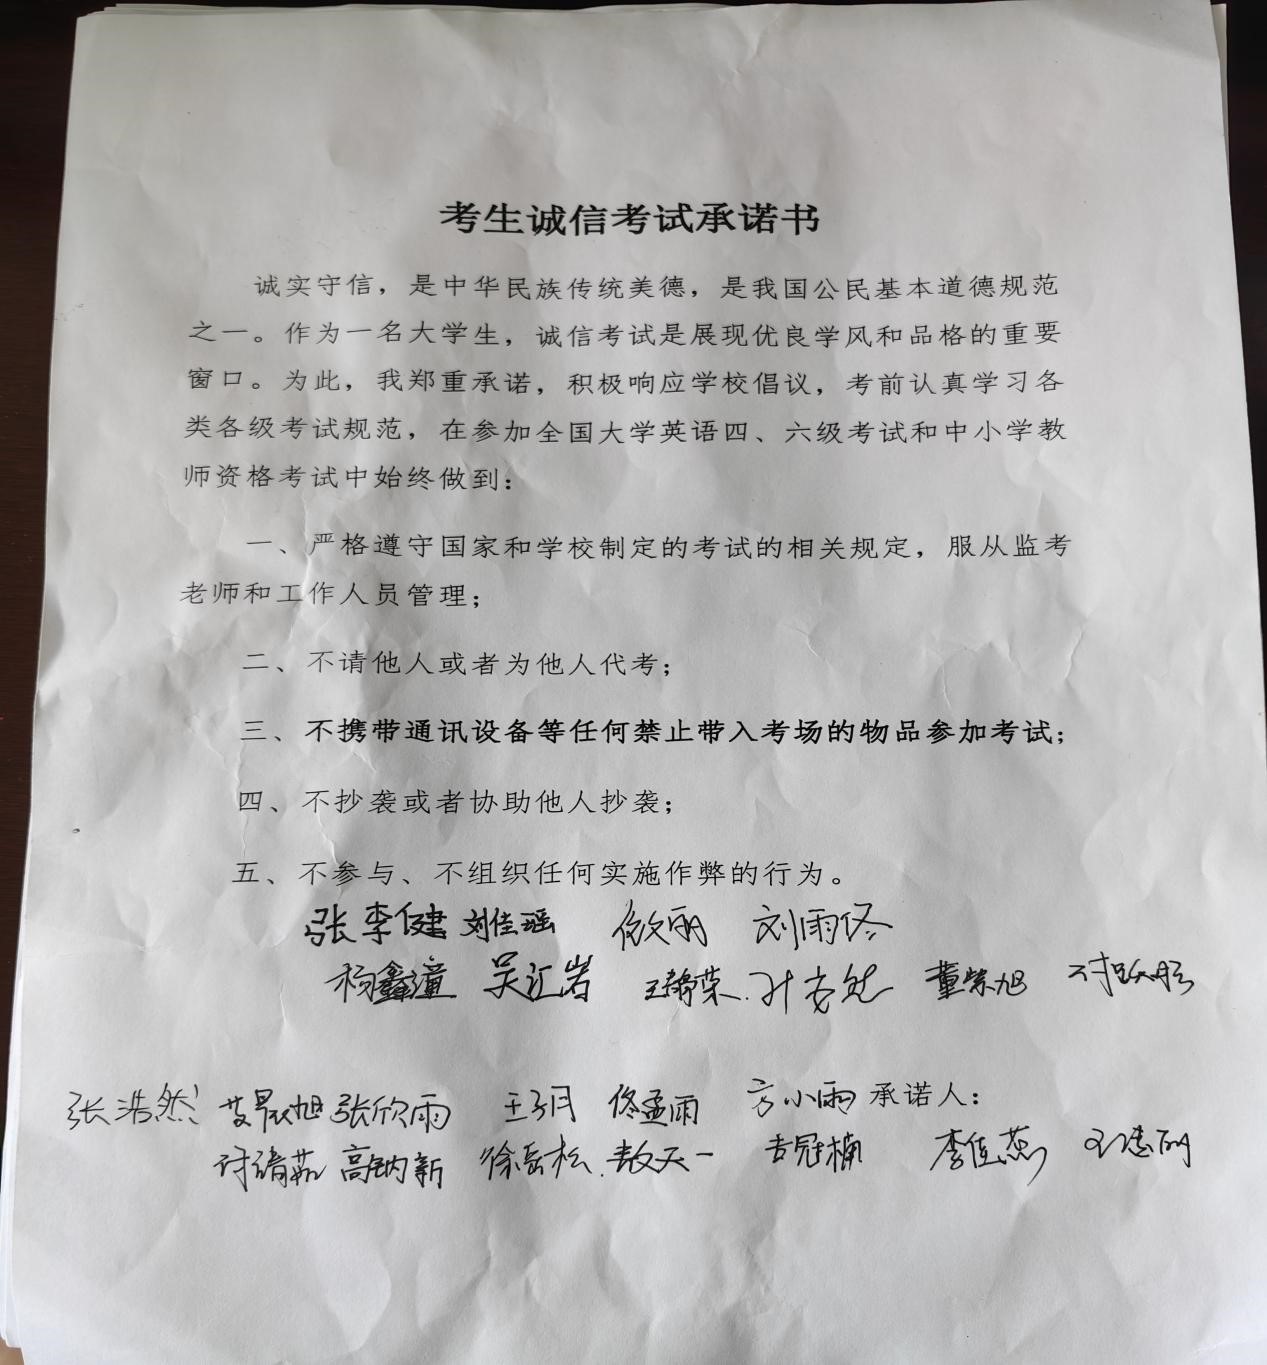 考生诚信考试承诺书
诚实守信，是中华民族传统美德，是我国公民基本道德规范
之一。作为一名大学生，诚信考试是展现优良学风和品格的重要
窗口。为此，我郑重承诺，积极响应学校倡议，考前认真学习各
类各级考试规范，在参加全国大学英语四、六级考试和中小学教
师资格考试中始终做到：
一、严格遵守国家和学校制定的考试的相关规定，服从监考
老师和工作人员管理；
二、不请他人或者为他人代考；
三、不携带通讯设备等任何禁止带入考场的物品参加考试；
四、不抄袭或者协助他人抄袭；
五、不参与、不组织任何实施作弊的行为。
张李健 刘佳瑶 刘雨佟
杨鑫潼 吴汇岩 王静荣
张浩然 艾晨旭 张欣雨 王子月 佟孟雨 方小雨 承诺人：
高钠新 徐岳松 敖天一 李佳燕